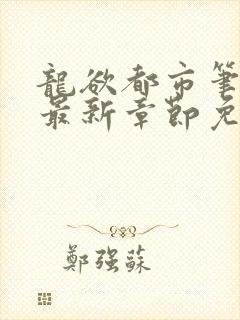 龍欲都市筆
最新章節免
鄭強蘇